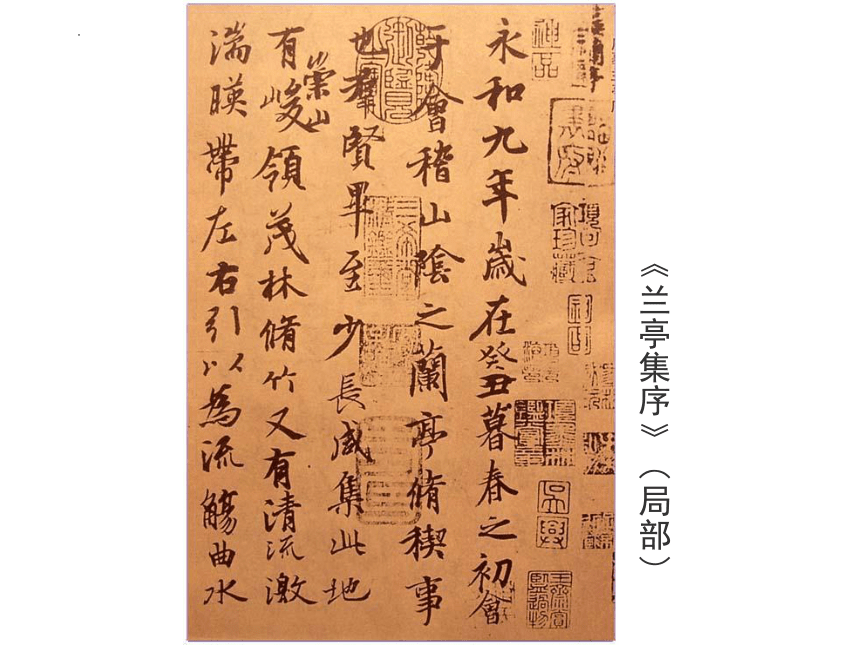 永和九年歲在癸丑暮春之初會
于會稽山陰之蘭亭脩稧事
也羣賢畢至少長咸集此地
有崇山峻領茂林脩竹又有清流激
湍暎帶左右引以為流觴曲水
《兰亭集序》（局部）